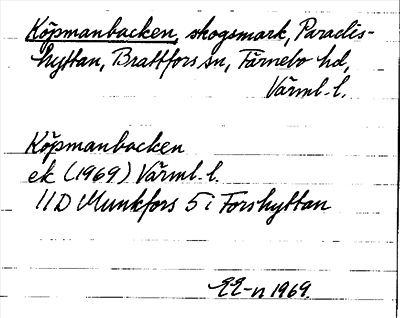 Köpmanbacken, skogsmark, Paradis-
hyttan, Brattfors sn, Färnebo hd,
Värml. l.
Köpmanbacken
ek (1969) Värml. l.
11D Munkfors 5 i Forshyttan
1969